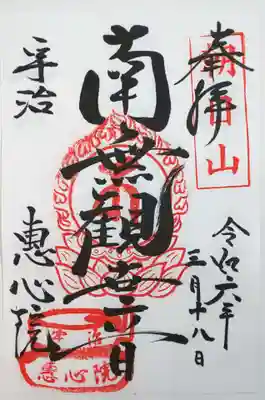 奉拝
朝日山
令和六年
三月十八日
南無觀世音
宇治
惠心院
宇治
惠心院